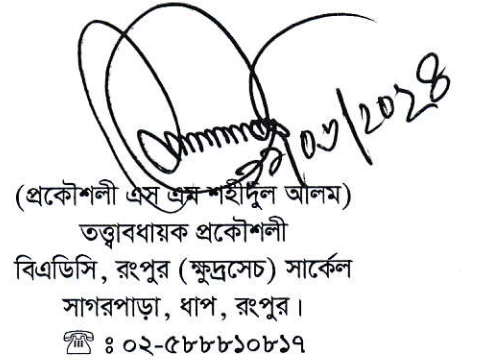 (প্রকৌশলী এস এম শহীদুল আলম)
তত্ত্বাবধায়ক প্রকৌশলী
বিএডিসি, রংপুর (ক্ষুদ্রসেচ) সার্কেল
সাগরপাড়া, ধাপ, রংপুর।
☎ : ০২-৫৮৮৮১০৮১৭